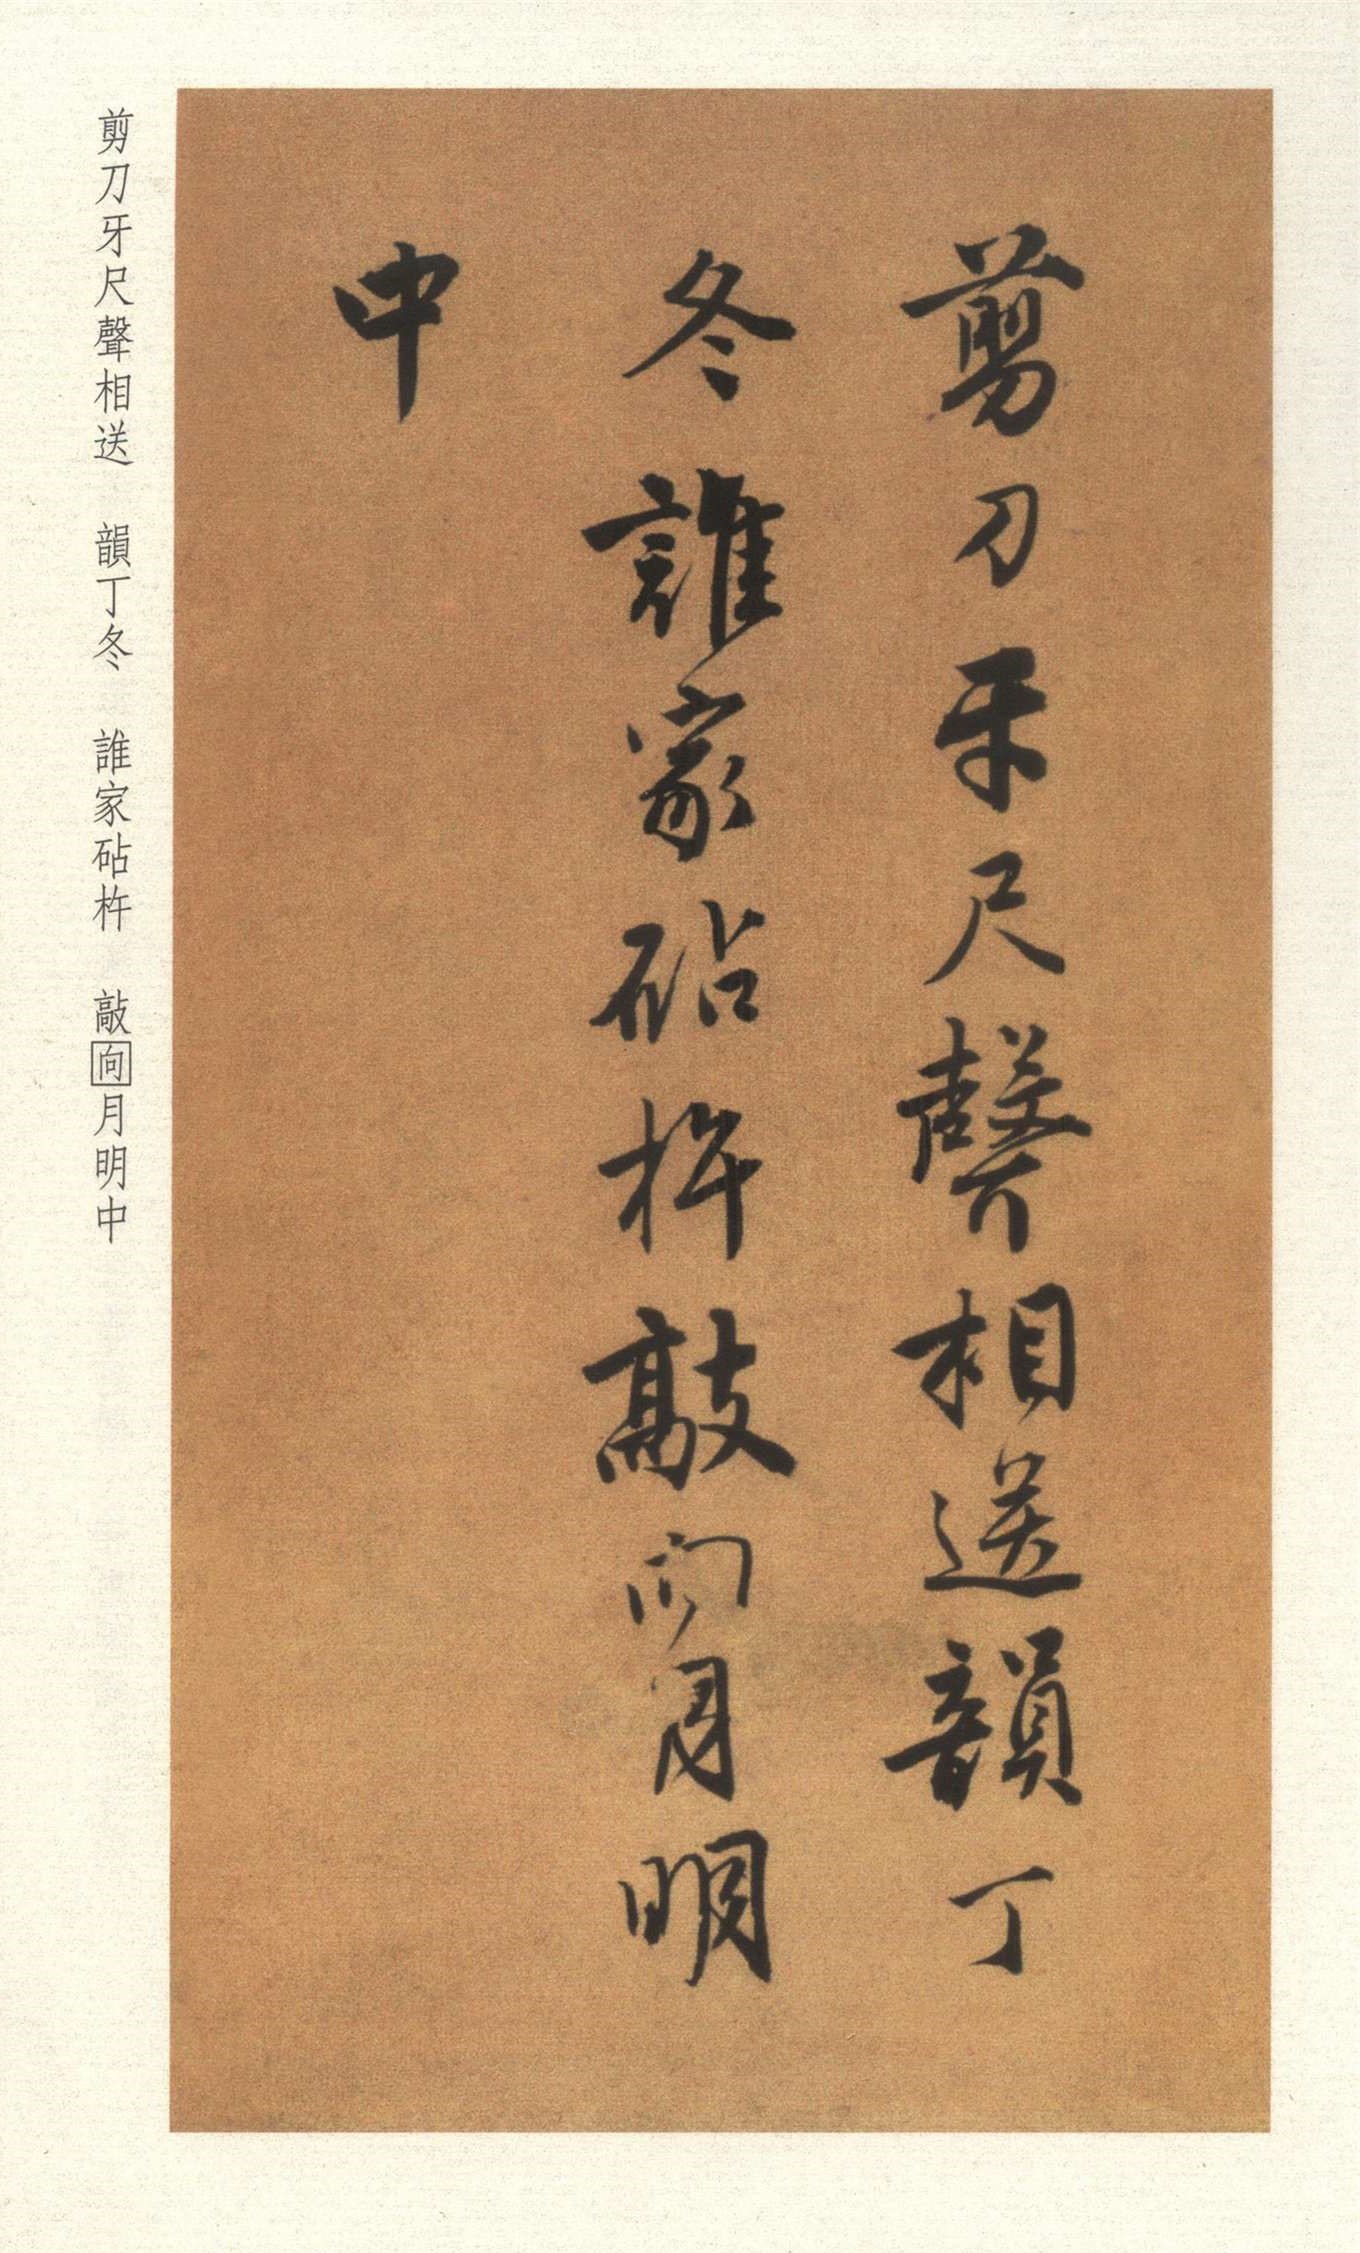 剪刀牙尺聲相送韻丁
冬誰家砧杵敲向月明
中
剪刀牙尺聲相送　韻丁冬　誰家砧杵　敲向月明中